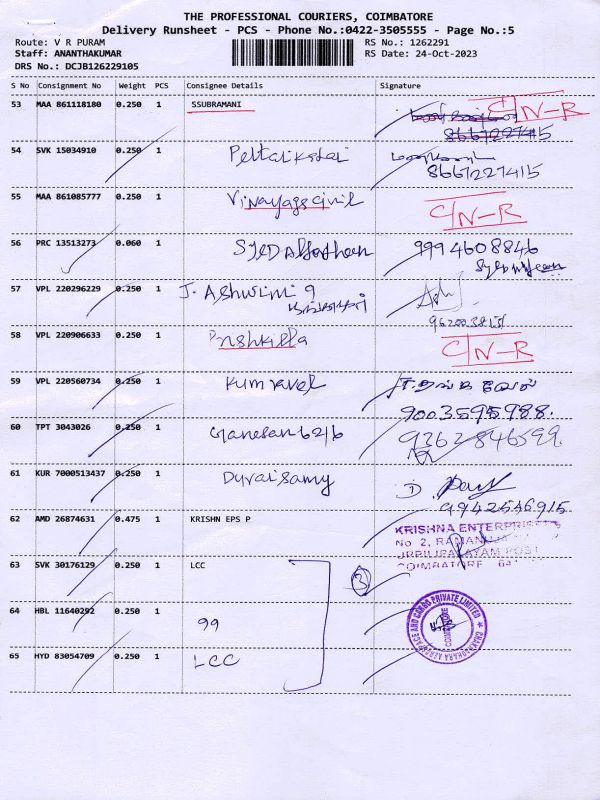 THE PROFESSIONAL COURIERS, COIMBATORE
Delivery Runsheet - PCS - Phone No.:0422-3505555 - Page No.:5
Route: V R PURAM
RS No.: 1262291
Staff: ANANTHAKUMAR
RS Date: 24-Oct-2023
DRS No.: DCJB126229105
S No Consignment No Weight PCS Consignee Details Signature
53 MAA 861118180 0.250 1 SSUBRAMANI C/N-R
8667227415
54 SVK 15034910 0.250 1
8667227415
55 MAA 861085777 0.250 1 Vinayaga civil C/N-R
56 PRC 13513273 0.060 1 9994608846
57 VPL 220296229 0.250 1 J. Ashwini
58 VPL 220906633 0.250 1 C/N-R
59 VPL 220560734 0.250 1 Kumravel
9003595988.
60 TPT 3043026 0.250 1 Ganesan 6216 9362846599.
61 KUR 7000513437 0.250 1 Duraisamy D.
9942546915
62 AMD 26874631 0.475 1 KRISHN EPS P KRISHNA ENTERPRISES
No 2,
UPPILIPALAYAM POST
COIMBATORE 641
63 SVK 30176129 0.250 1 LCC 3
64 HBL 11640292 0.250 1 99
CHANDRHARA AEROSPACE AND CARGO PRIVATE LIMITED
COIMBATORE
65 HYD 83054709 0.250 1 LCC